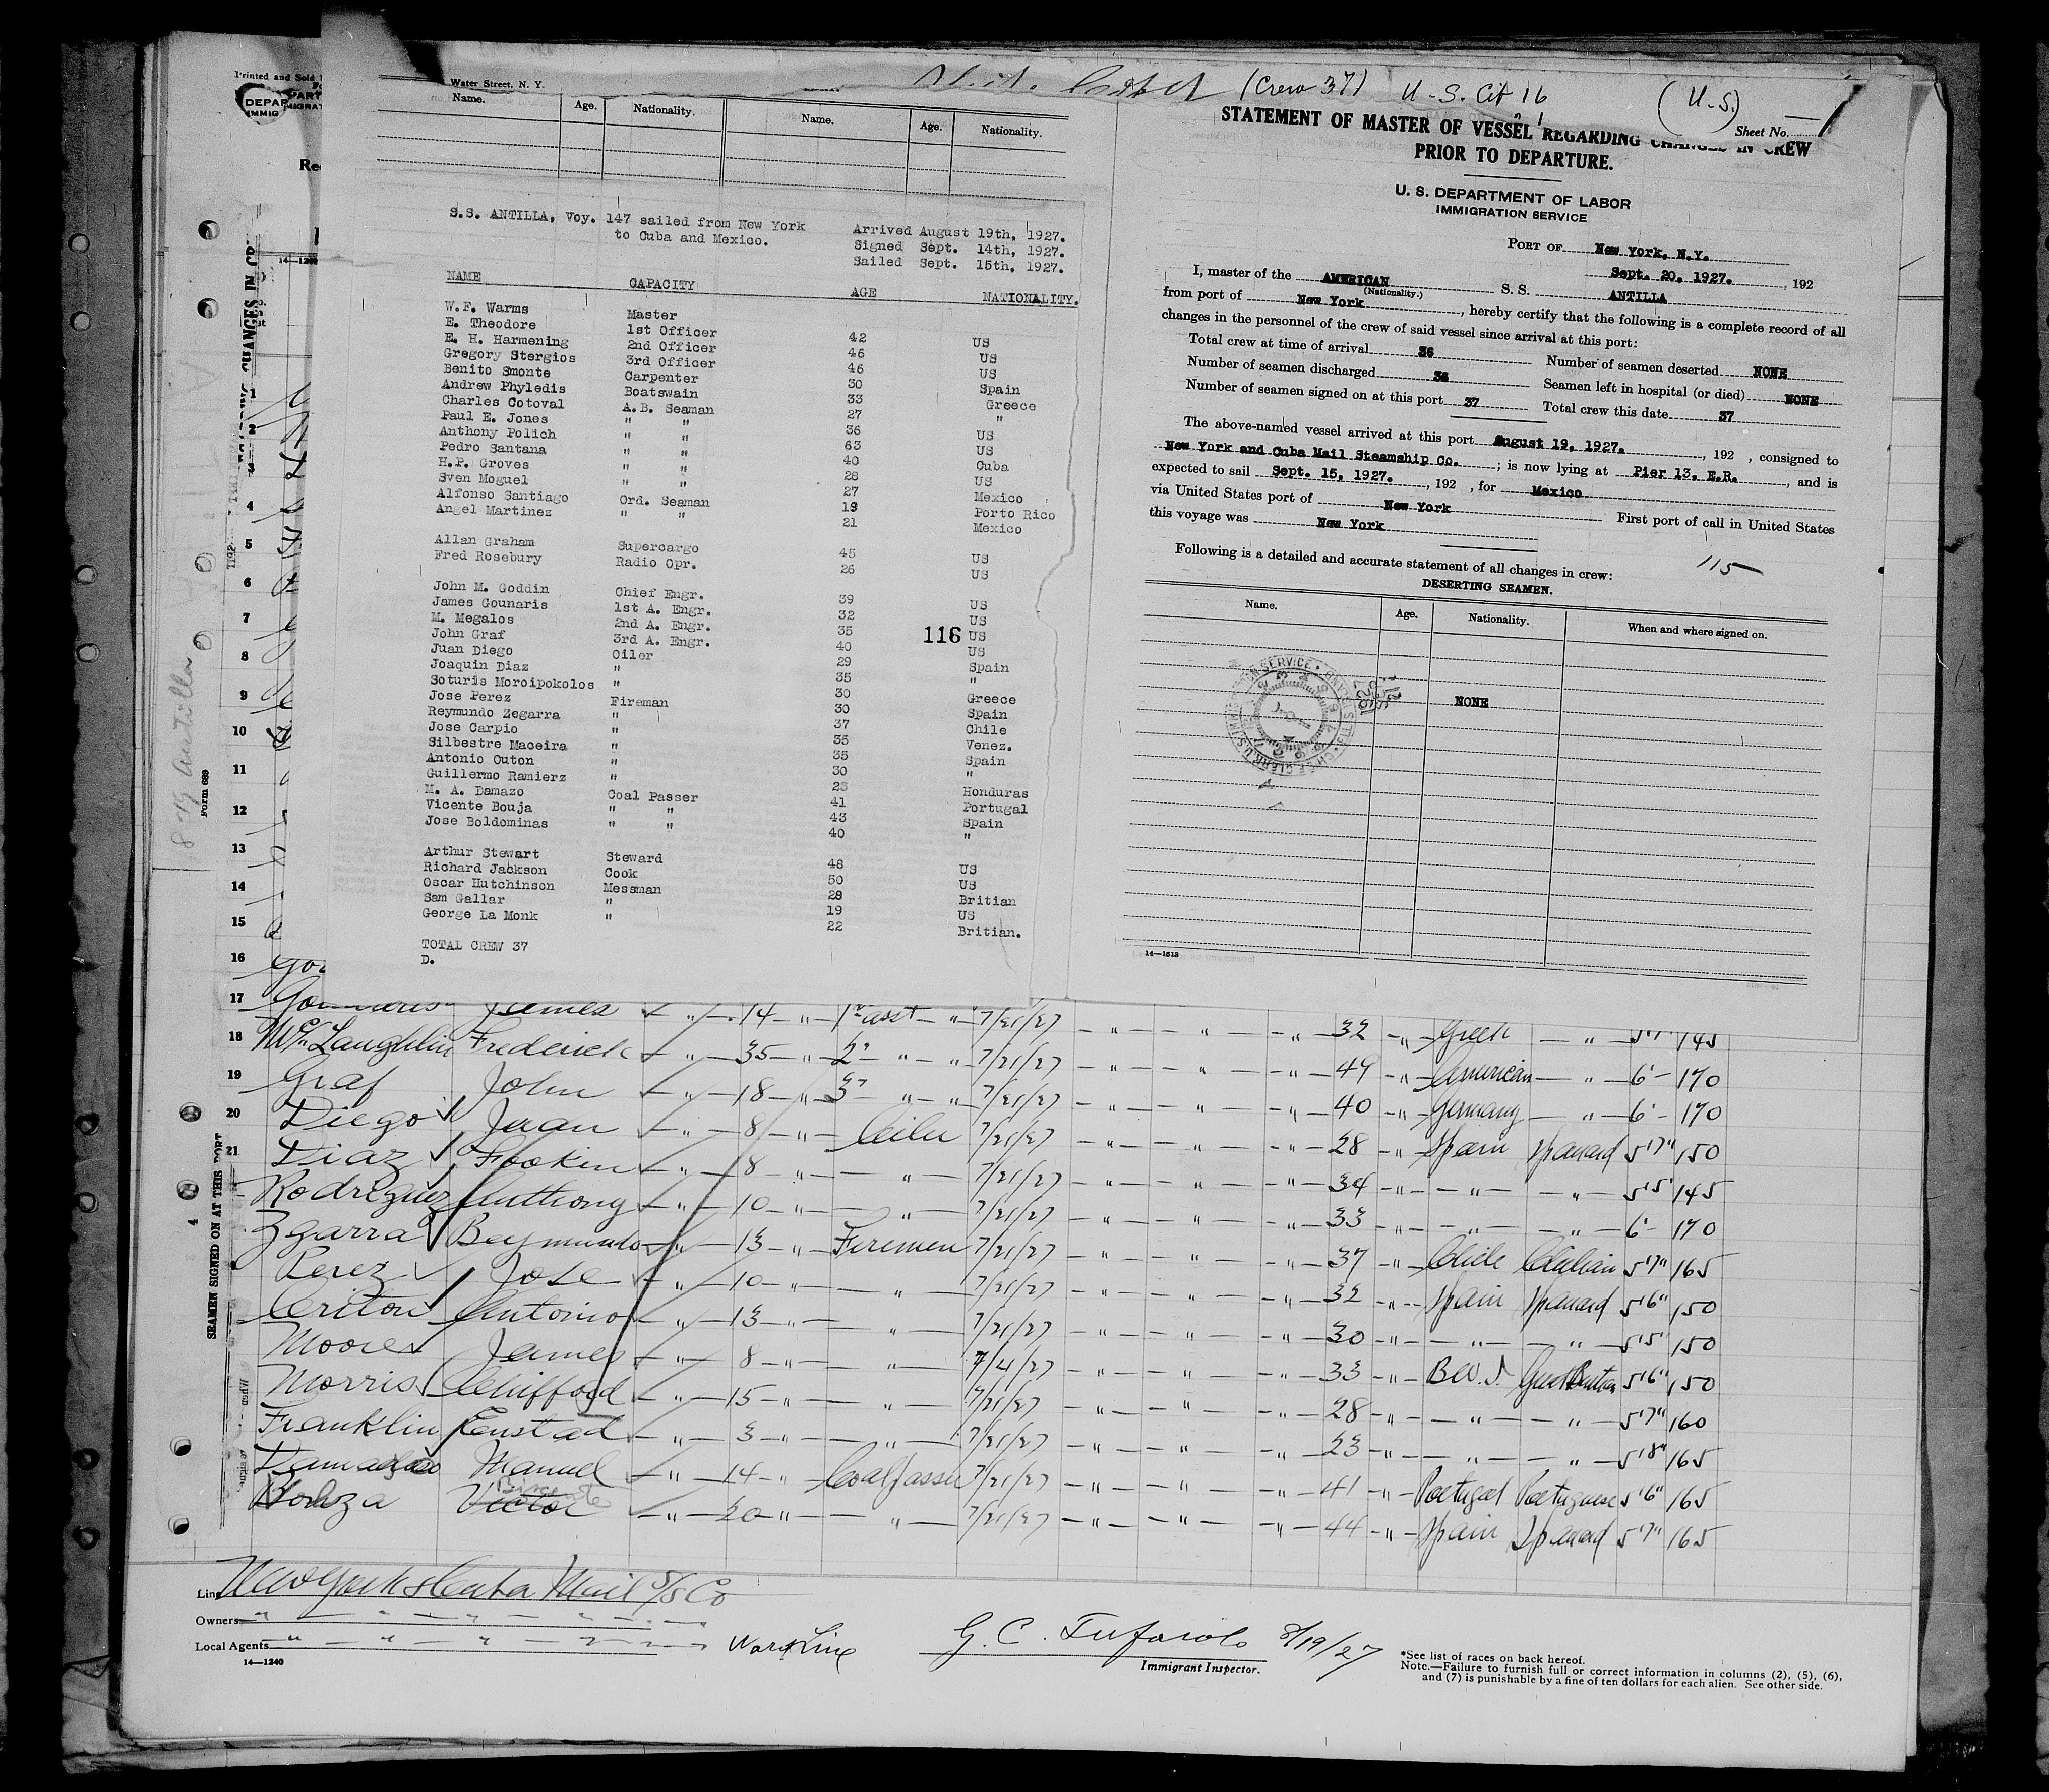 Printed and Sold
Water Street, N. Y.
(Crew 37) U.S. Cit 16 (U.S.) Sheet No. 1
DEPAR
IMMIG
Name. Age. Nationality. Name. Age. Nationality.
S.S. ANTILLA, Voy. 147 sailed from New York
to Cuba and Mexico.
Arrived August 19th, 1927.
Signed Sept. 14th, 1927.
Sailed Sept. 15th, 1927.
NAME CAPACITY AGE NATIONALITY.
W.F. Warms Master 42 US
E. Theodore 1st Officer 46 US
E. H. Harmening 2nd Officer 46 US
Gregory Stergios 3rd Officer 30 Spain
Benito Smonte Carpenter 33 Greece
Andrew Phyledis Boatswain 27 "
Charles Cotoval A.B. Seaman 36 US
Paul E. Jones " " 63 US
Anthony Polich " " 40 Cuba
Pedro Santana " " 28 US
H.P. Groves " " 27 Mexico
Sven Moguel " " 19 Porto Rico
Alfonso Santiago Ord. Seaman 21 Mexico
Angel Martinez " "
Allan Graham Supercargo 45 US
Fred Rosebury Radio Opr. 26 US
John M. Goddin Chief Engr. 39 US
James Gounaris 1st A. Engr. 32 US
M. Megalos 2nd A. Engr. 35 US
John Graf 3rd A. Engr. 40 US
116
Juan Diego Oiler 29 Spain
Joaquin Diaz " 35 "
Soturis Moroipokolos " 30 Greece
Jose Perez Fireman 30 Spain
Reymundo Zegarra " 37 Chile
Jose Carpio " 35 Venez.
Silbestre Maceira " 35 Spain
Antonio Outon " 30 "
Guillermo Ramierz " 23 Honduras
M. A. Damazo Coal Passer 41 Portugal
Vicente Bouja " " 43 Spain
Jose Boldominas " " 40 "
Arthur Stewart Steward 48 US
Richard Jackson Cook 50 US
Oscar Hutchinson Messman 28 Britian
Sam Gallar " 19 US
George La Monk " 22 Britian.
TOTAL CREW 37
D.
STATEMENT OF MASTER OF VESSEL REGARDING CHANGES IN CREW
PRIOR TO DEPARTURE.
U. S. DEPARTMENT OF LABOR
IMMIGRATION SERVICE
PORT OF New York, N.Y.
Sept. 20, 1927. , 192
I, master of the AMERICAN S. S. ANTILLA
(Nationality.)
from port of New York , hereby certify that the following is a complete record of all
changes in the personnel of the crew of said vessel since arrival at this port:
Total crew at time of arrival 36 Number of seamen deserted NONE
Number of seamen discharged 36 Seamen left in hospital (or died) NONE
Number of seamen signed on at this port 37 Total crew this date 37
The above-named vessel arrived at this port August 19, 1927. , 192 , consigned to
New York and Cuba Mail Steamship Co. ; is now lying at Pier 13, E.R. , and is
expected to sail Sept. 15, 1927. , 192 , for Mexico
via United States port of New York First port of call in United States
this voyage was New York
Following is a detailed and accurate statement of all changes in crew: 115
DESERTING SEAMEN.
Name. Age. Nationality. When and where signed on.
NONE
14—1613
14—1240
Form 689
SEAMEN SIGNED ON AT THIS PORT
1
2
3
4
5
6
7
8
9
10
11
12
13
14
15
16
17 James " 14 " 1st asst " 7/21/27 " " " 32 " Greek " 145
18 McLaughlin Frederick " 35 " 2" " " 7/21/27 " " " 49 " American " 6' 170
19 Graf John " 18 " 3" " " 7/21/27 " " " 40 " Germany " 6' 170
20 Diego Juan " 8 " Oiler 7/21/27 " " " 28 " Spain Spaniard 5'7" 150
21 Diaz " 8 " " 7/21/27 " " " 34 " " " 5'5" 145
Rodriguez Anthony " 10 " " 7/21/27 " " " 33 " " " 6' 170
Zgarra Reymundo " 13 " Firemen 7/21/27 " " " 37 " Chile Chilian 5'7" 165
Perez Jose " 10 " " 7/21/27 " " " 32 " Spain Spaniard 5'6" 150
Antonio " 13 " " 7/21/27 " " " 30 " " " 5'5" 150
Moore James " 8 " " 7/21/27 " " " 33 " B.W.I. Great Britain 5'6" 150
Morris Chifford " 15 " " 7/21/27 " " " 28 " " " 5'7" 160
Franklin " 3 " " 7/21/27 " " " 23 " " " 5'8" 165
Manuel " 14 " Coal Passer 7/21/27 " " " 41 " Portugal Portuguese 5'6" 165
Victor " 20 " " 7/21/27 " " " 44 " Spain Spaniard 5'7" 165
Line New York & Cuba Mail S/S Co
Owners " " " " " "
Local Agents " " " " " " Ward Line
14—1240
G. C. Tufarolo 8/19/27
Immigrant Inspector.
*See list of races on back hereof.
Note.—Failure to furnish full or correct information in columns (2), (5), (6),
and (7) is punishable by a fine of ten dollars for each alien. See other side.